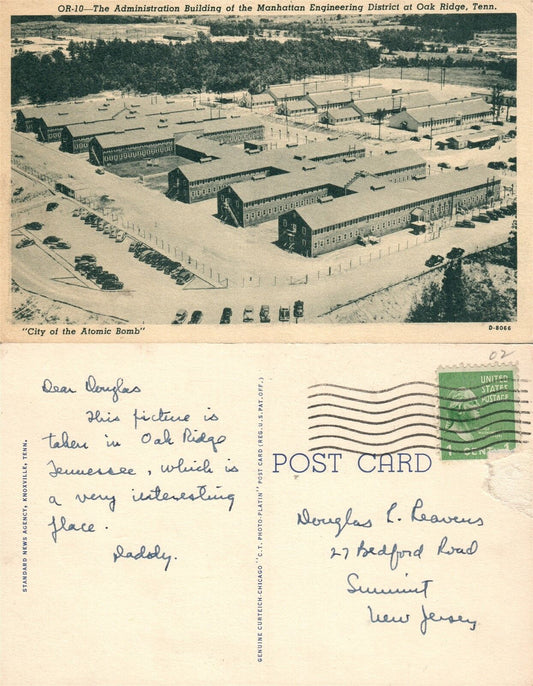 OR-10—The Administration Building of the Manhattan Engineering District at Oak Ridge, Tenn.
"City of the Atomic Bomb"
D-8066
Dear Douglas
This picture is
taken in Oak Ridge
Tennessee, which is
a very interesting
place.
Daddy.
STANDARD NEWS AGENCY, KNOXVILLE, TENN.
GENUINE CURTEICH-CHICAGO "C.T. PHOTO-PLATIN" POST CARD (REG. U.S. PAT. OFF.)
02
UNITED
STATES
POSTAGE
1 CENT 1
POST CARD
Douglas L. Reavens
27 Bedford Road
Summit
New Jersey